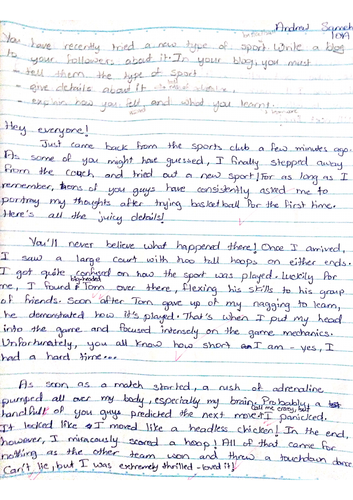 Andrew Sameh
10A
You have recently tried a new type of sport. Write a blog
to your followers about it. In your blog, you must
- tell them the type of sport
- give details about it
- explain how you felt, and what you learnt.
Hey everyone!
Just came back from the sports club a few minutes ago.
As some of you might have guessed, I finally stepped away
from the couch and tried out a new sport! For as long as I
remember, tons of you guys have consistently asked me to
portray my thoughts after trying basketball for the first time.
Here's all the juicy details!
You'll never believe what happened there! Once I arrived,
I saw a large court with two tall hoops on either ends.
I got quite confused on how the sport was played. Luckily for
me, I found Tom over there, flexing his skills to his group
of friends. Soon after Tom gave up of my nagging to learn,
he demonstrated how it's played. That's when I put my head
into the game and focused intensely on the game mechanics.
Unfortunately, you all know how short I am - yes, I
had a hard time...
As soon as a match started, a rush of adrenaline
pumped all over my body, especially my brain. Probably a
handful of you guys predicted the next move: I panicked.
call me crazy, but
It looked like I moved like a headless chicken! In the end,
however, I miracously scored a hoop! All of that came for
nothing as the other team won and threw a touchdown dance.
Can't lie, but I was extremely thrilled - loved it!